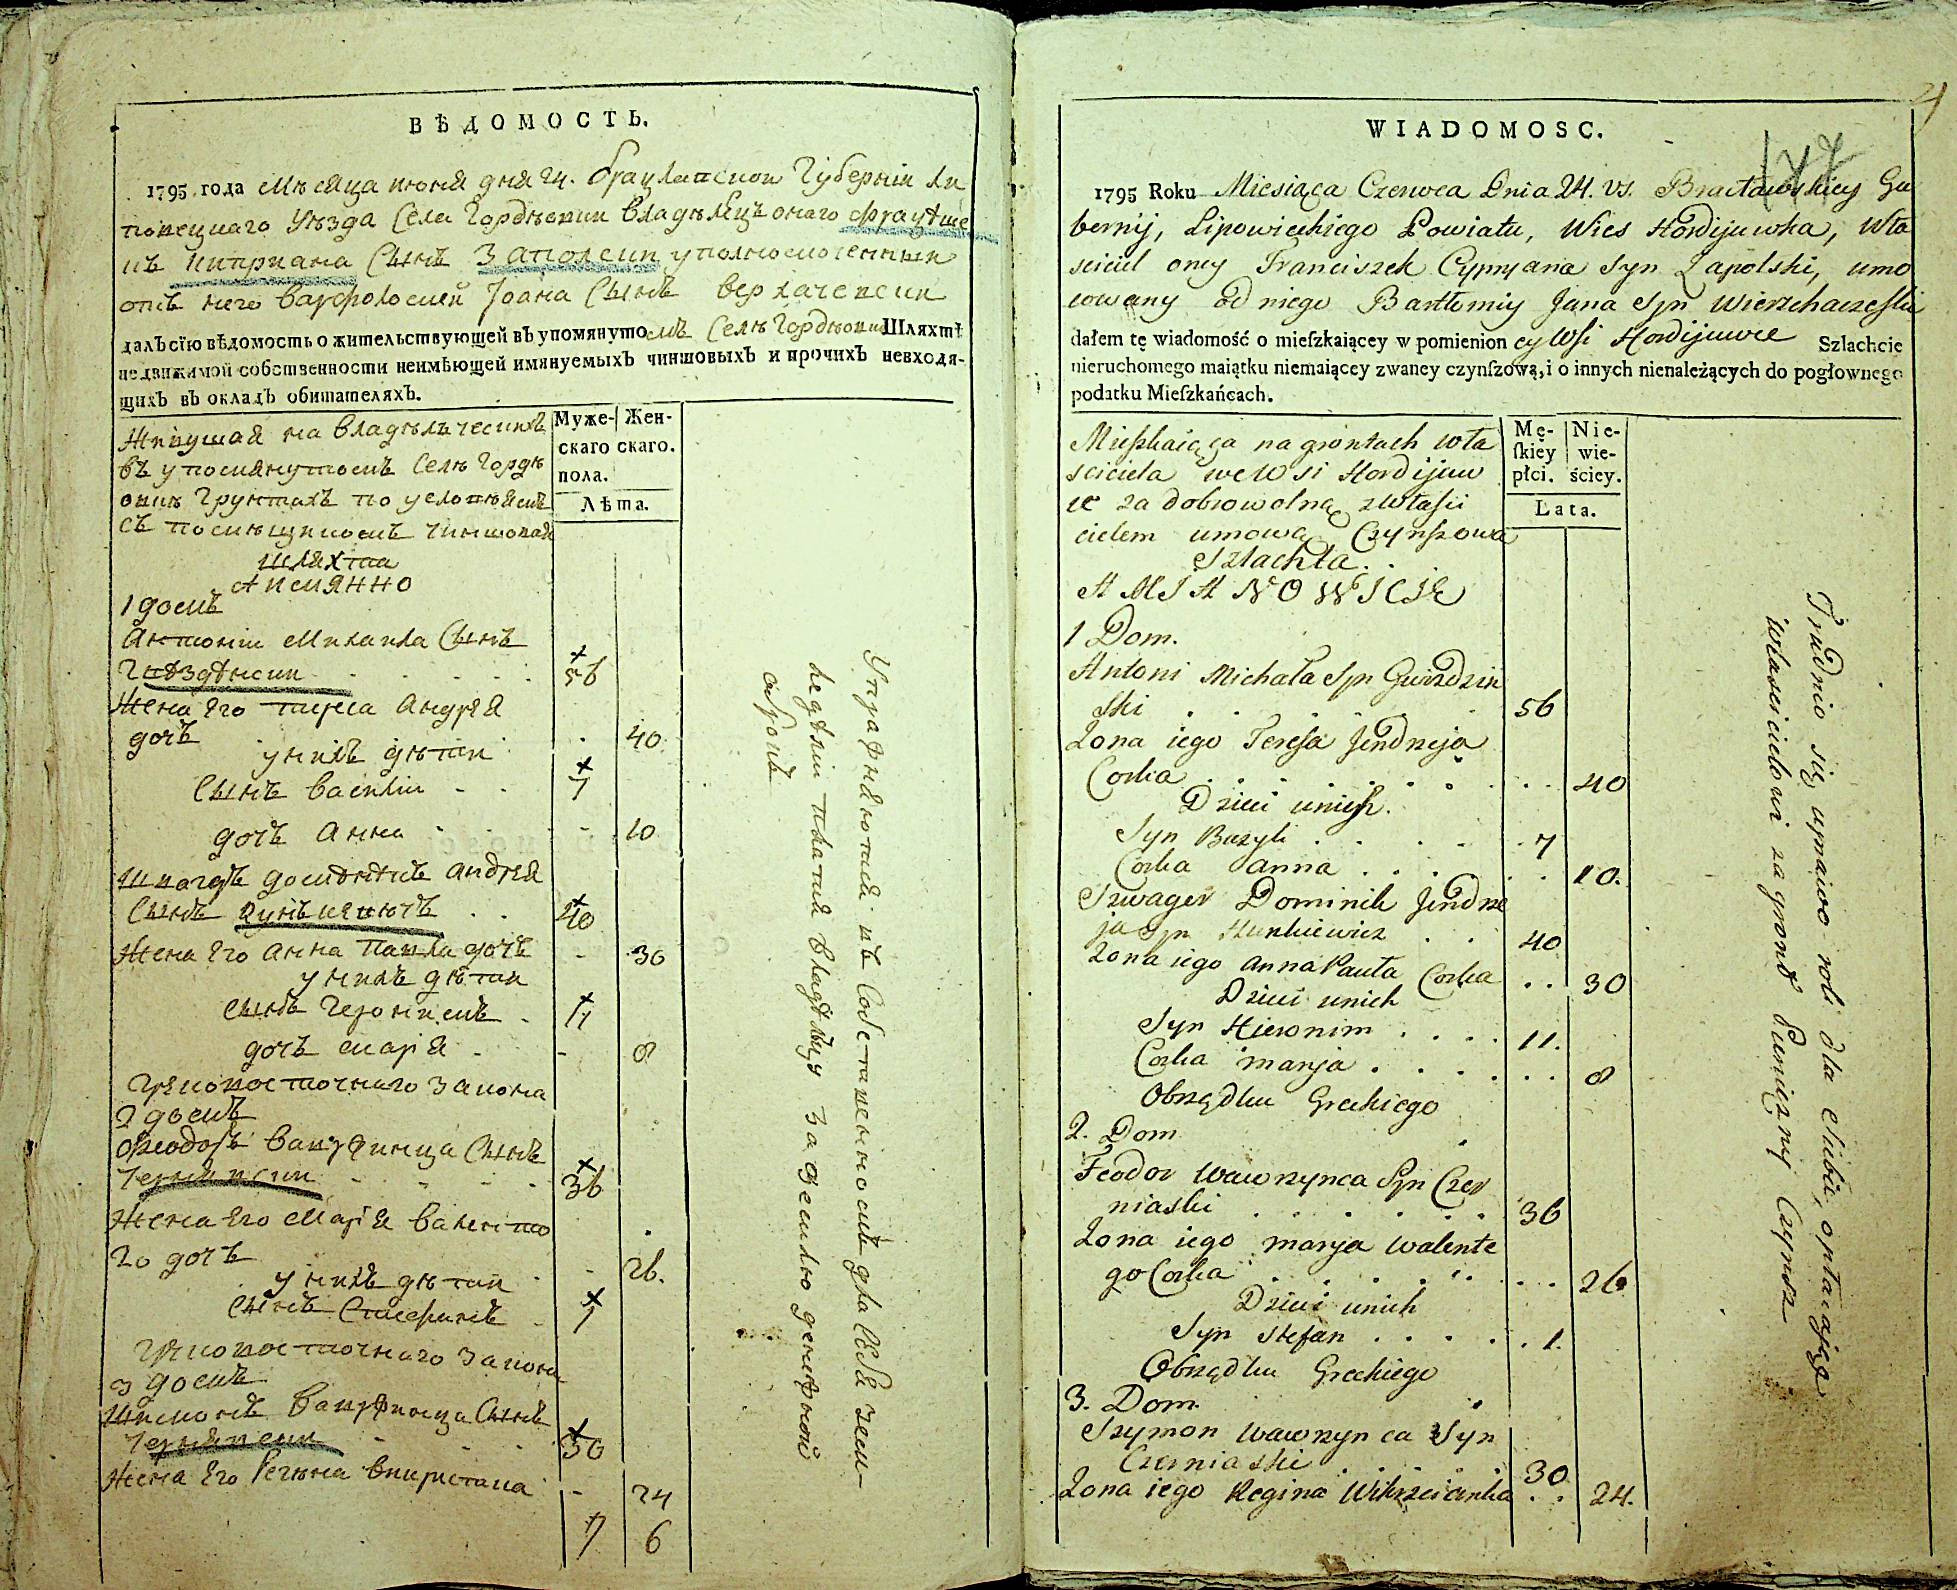 ВѢДОМОСТЬ.
1795 года Мѣсяца июня дня 24. брацлавской Губернiи Ли
повецкаго уѣзда Села Гордѣовки владѣлецъ онаго францѣше
къ киприана Сынъ Заполскии уполномоченныи
отъ него варфоломей Иоана Сынъ верхачевскии
далъ сїю вѣдомость о жительствующей въ упомянуто мъ Селѣ Гордѣовки Шляхтѣ
недвижимой собственности неимѣющей имянуемыхъ чиншовыхъ и прочихъ невходя-
щихъ въ окладъ обитателяхъ.
Муже- Жен-
скаго скаго.
пола.
Лѣта.
Живущая на владѣлческихъ
въ упомянутомъ Селѣ Гордѣ
овки Грунтахъ по условѣямъ
съ помѣщикомъ чиншовая
шляхта
Аимянно
1 домъ
Антонiи Михаила Сынъ
Гвѣздѣнскии . . . . . 56
Жена Его тереса Андрея
дочъ . 40
у нихъ дѣтаи
Сынъ василiи - - 7
дочъ Анна - - 10
шварѣ доминѣкъ Андрея
Сынъ кунъкевичъ . . 40
Жена Его Анна Павла дочъ - 30
у нихъ дѣтаи
Сынъ Геронимъ . 11
дочъ марiя - - 8
грековосточнаго закона
2 домъ
Феодоръ вавржинца Сынъ
Чернявскии - - - - 36
Жена Его Марiя валенто
го дочъ - 26.
у нихъ дѣтаи
Сынъ Стефанъ - 1
грековосточнаго закона
3 домъ
Шимонъ вавржинца Сынъ
Чернявскии - - - 30
Жена Его Регина викристана - 24
7 6
Упражняются въ Собственномъ для Себя земле-
делiи платя владѣлцу за землю денежной
оброкъ
WIADOMOSC.
21
177
1795 Roku Miesiąca Czerwca Dnia 24. vs. Bracławskiey Gu
bernij, Lipowieckiego Powiatu, Wies Hordijuwka, Wła
sciciel oney Franciszek Cypryana Syn Zapolski, umo
cowany od niego Bartłomiey Jana Syn Wierzchaczeski
dałem tę wiadomość o mieſzkaiącey w pomienion ey Wsi Hordijuwce Szlachcie
nieruchomego maiątku niemaiącey zwaney czynſzową, i o innych nienależących do pogłownego
podatku Mieſzkańcach.
Mę- Nie-
ſkiey wie-
płci. ściey.
Lata.
Mieszkaiąca na grontach wła
sciciela we Wsi Hordijuw
ce za dobrowolną z własci
cielem umową Czynszowa
Szlachta . .
A MIANOWICIE
1 Dom.
Antoni Michała Syn Gwizdzin
ski . . . . . . 56
Zona iego Teresa Jendrzeja
Corka . . . . . . . 40
Dzieci unich.
Syn Bazyli . . . . . 7
Corka Anna . . . . . . 10.
Szwager Dominik Jendrze
ja Syn Kunkiewicz . . 40
Zona iego Anna Pauła Corka . . 30
Dzieci unich
Syn Hieronim . . . . 11.
Corka marya . . . . . . 8
Obrzędku Greckiego
2. Dom
Feodor Wawrzynca Syn Czer
niaski . . . . . . 36
Zona iego marya Walente
go Corka . . . . . . . 26
Dzieci unich
Syn Stefan . . . . . 1.
Obrzędku Greckiego
3. Dom.
Szymon Wawrzynca Syn
Czerniaski . . . . 30
Zona iego Regina Wikrzcianka . . 24.
Trudnio się uprawo roli dla siebie, opłaiając
własicielowi za gront Pieniężny Czynsz